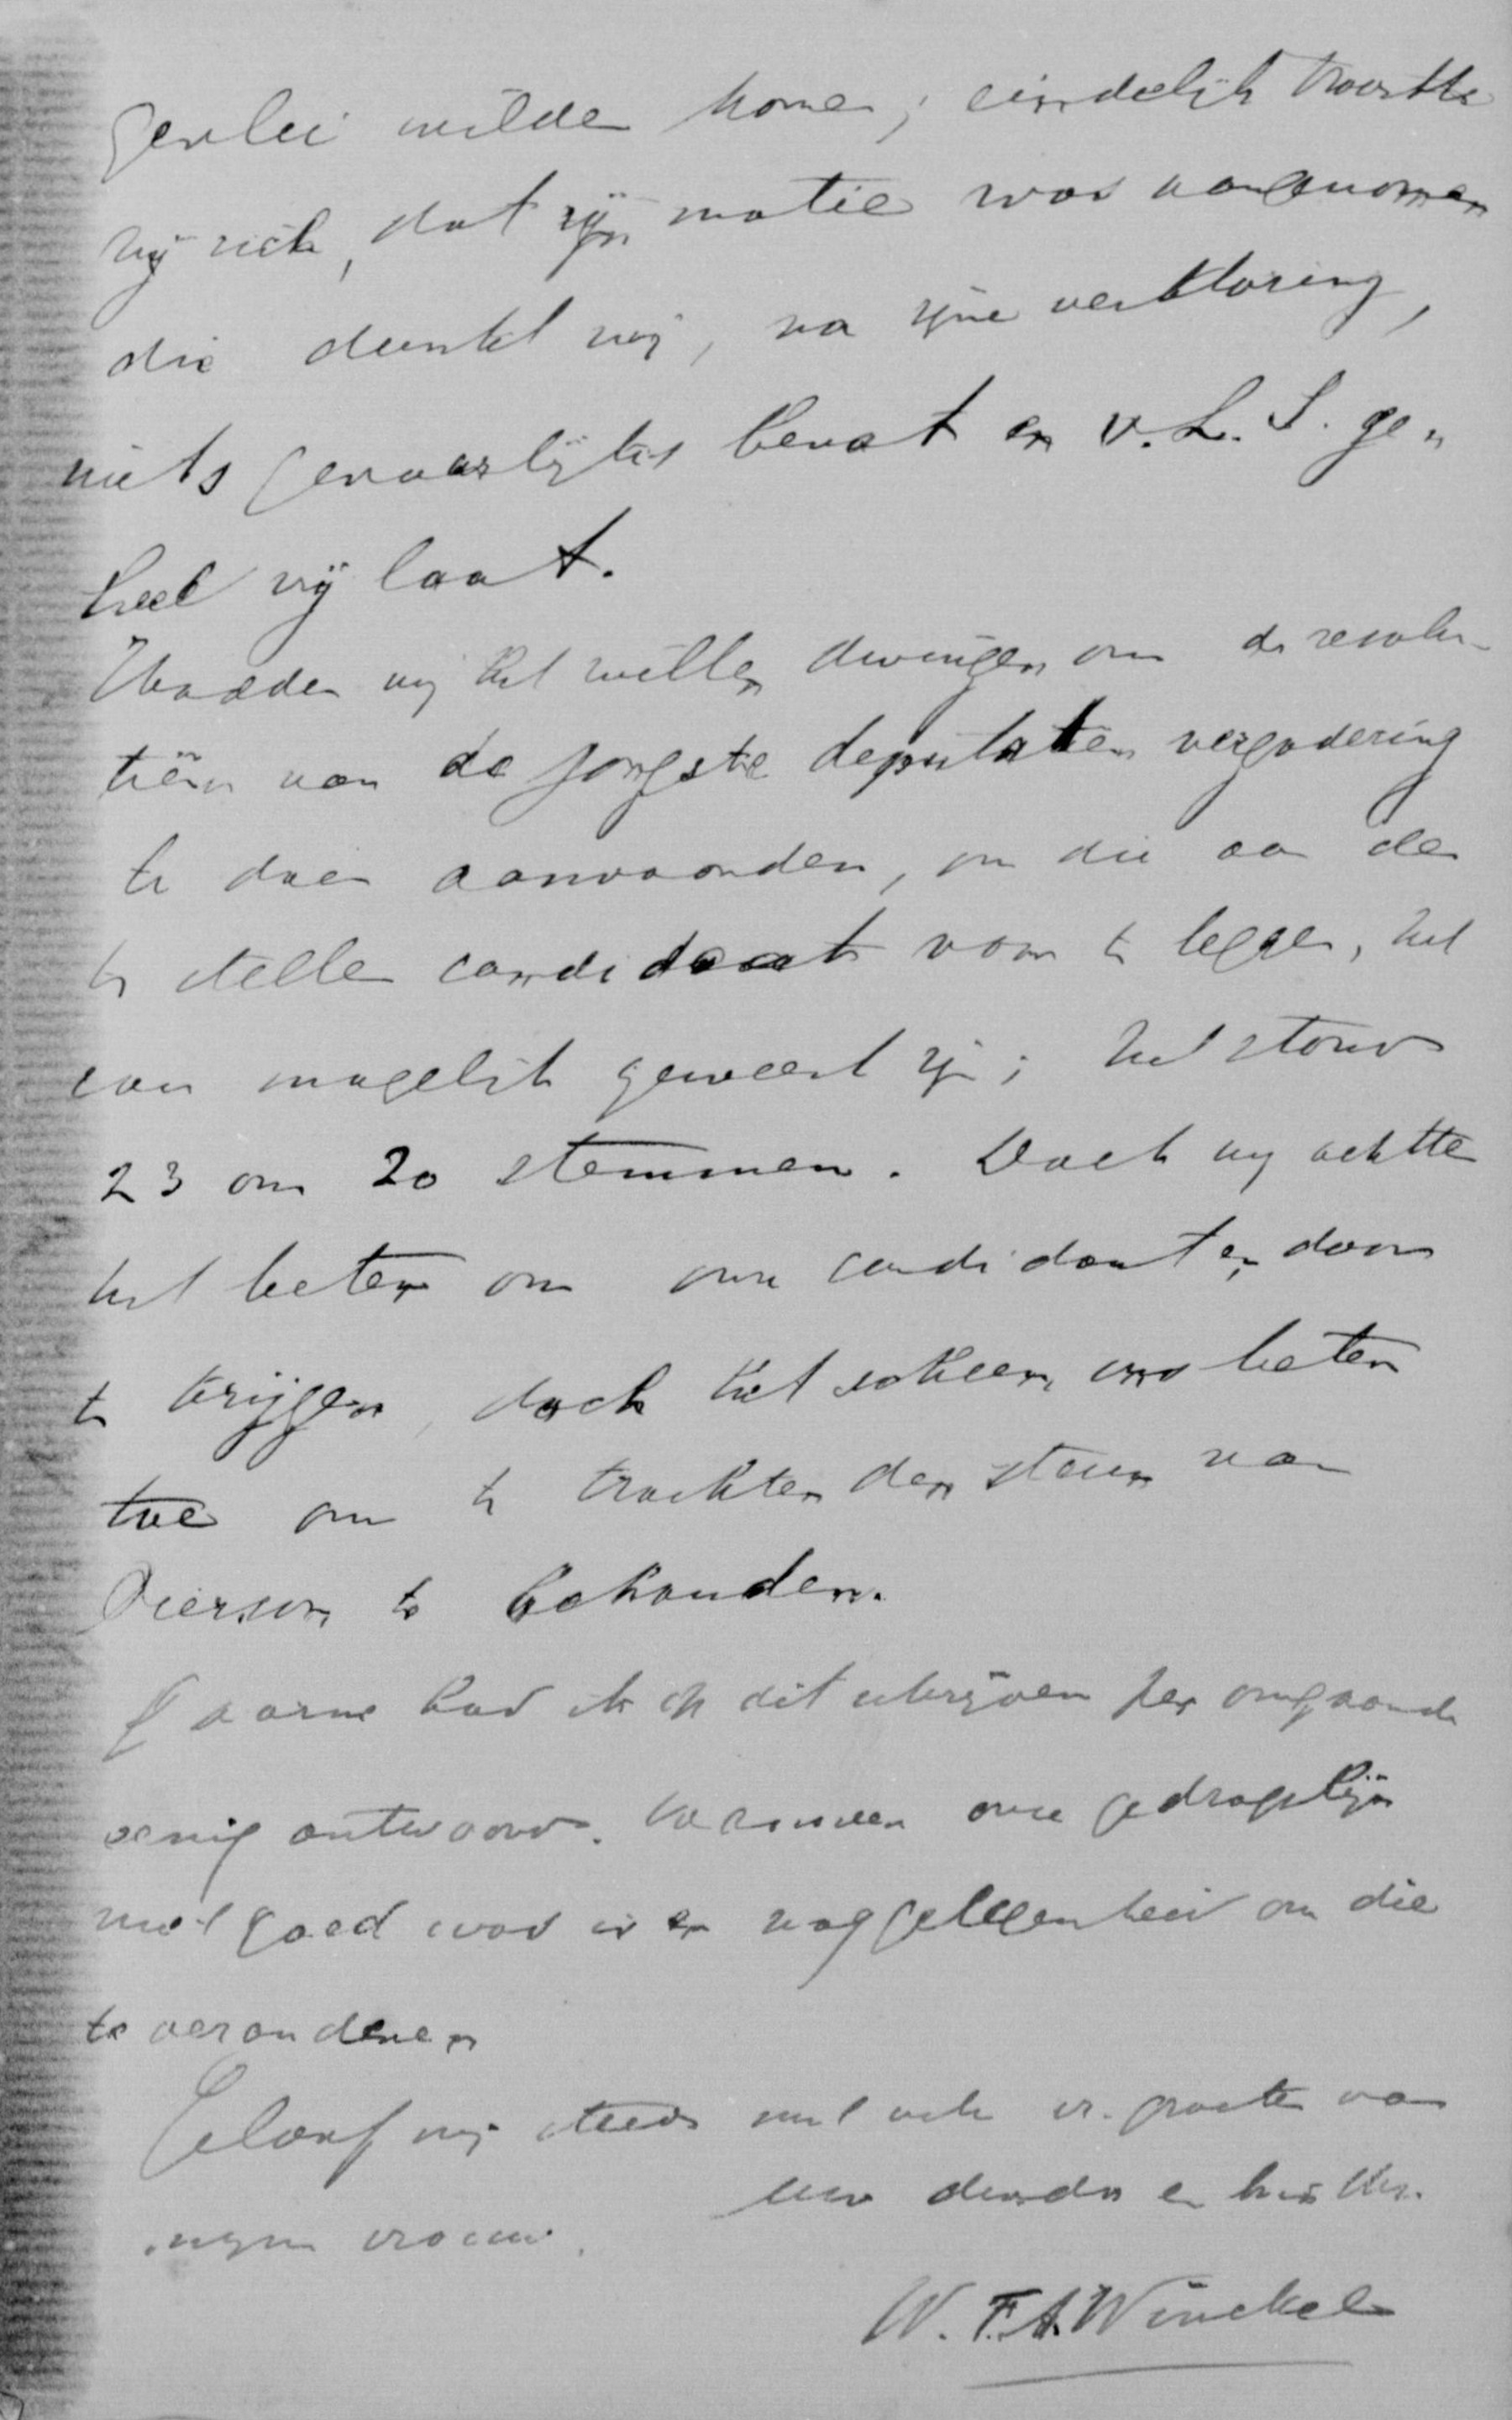 wilde komen; eindelijk troostte
hij zich, dat zijn motie was aangenomen
die dunkt mij, na zijne verklaring,
niets gevaarlijks bevat en v. L. S. ge„
heel vrij laat.
Hadden wij het willen dwingen om de resolu-
tiën van de jongste deputaten vergadering
te doen aanvaarden, om die aan de
te stellen candidaat voor te leggen, het
zou mogelijk geweest zijn; het stond
23 om 20 stemmen. Doch wij achtte
het beter om onze candidaten door
te krijgen, doch het scheen ons beter
toe om te trachten den steun van
Pierson te behouden.
Gaarne had ik op dit schrijven per omgaande
eenig antwoord. Wanneer onze gedragslijn
niet goed was is er nog gelegenheid om die
te veranderen
Geloof mij steeds met ook vr. groete van
mijn vrouw. uw dienstv en
W. F. A. Winckel